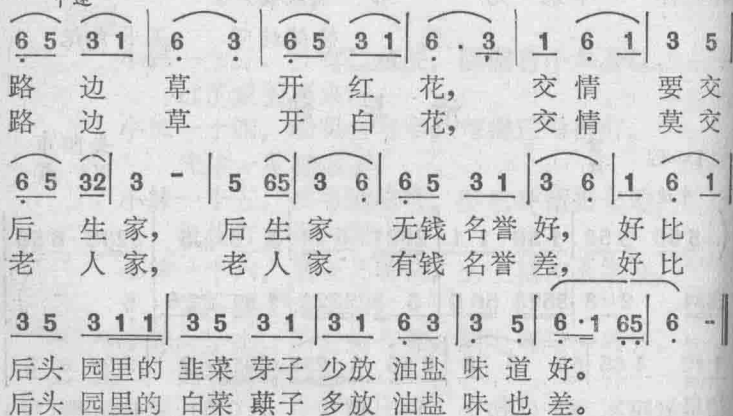 6 5 3 1 | 6 3 | 6 5 3 1 | 6 · 3 | 1 6 1 | 3 5
路 边 草 开 红 花， 交 情 要 交
路 边 草 开 白 花， 交 情 莫 交
6 5 32 | 3 - | 5 65 3 6 | 6 5 3 1 | 3 6 | 1 6 1
后 生 家， 后 生 家 无钱 名誉 好， 好 比
老 人 家， 老 人 家 有钱 名誉 差， 好 比
3 5 3 1 1 | 3 5 3 1 | 3 1 6 3 | 3 5 | 6 · 1 65 | 6 - ‖
后头 园里的 韭菜 芽子 少放 油盐 味 道 好。
后头 园里的 白菜 蕻子 多放 油盐 味 也 差。